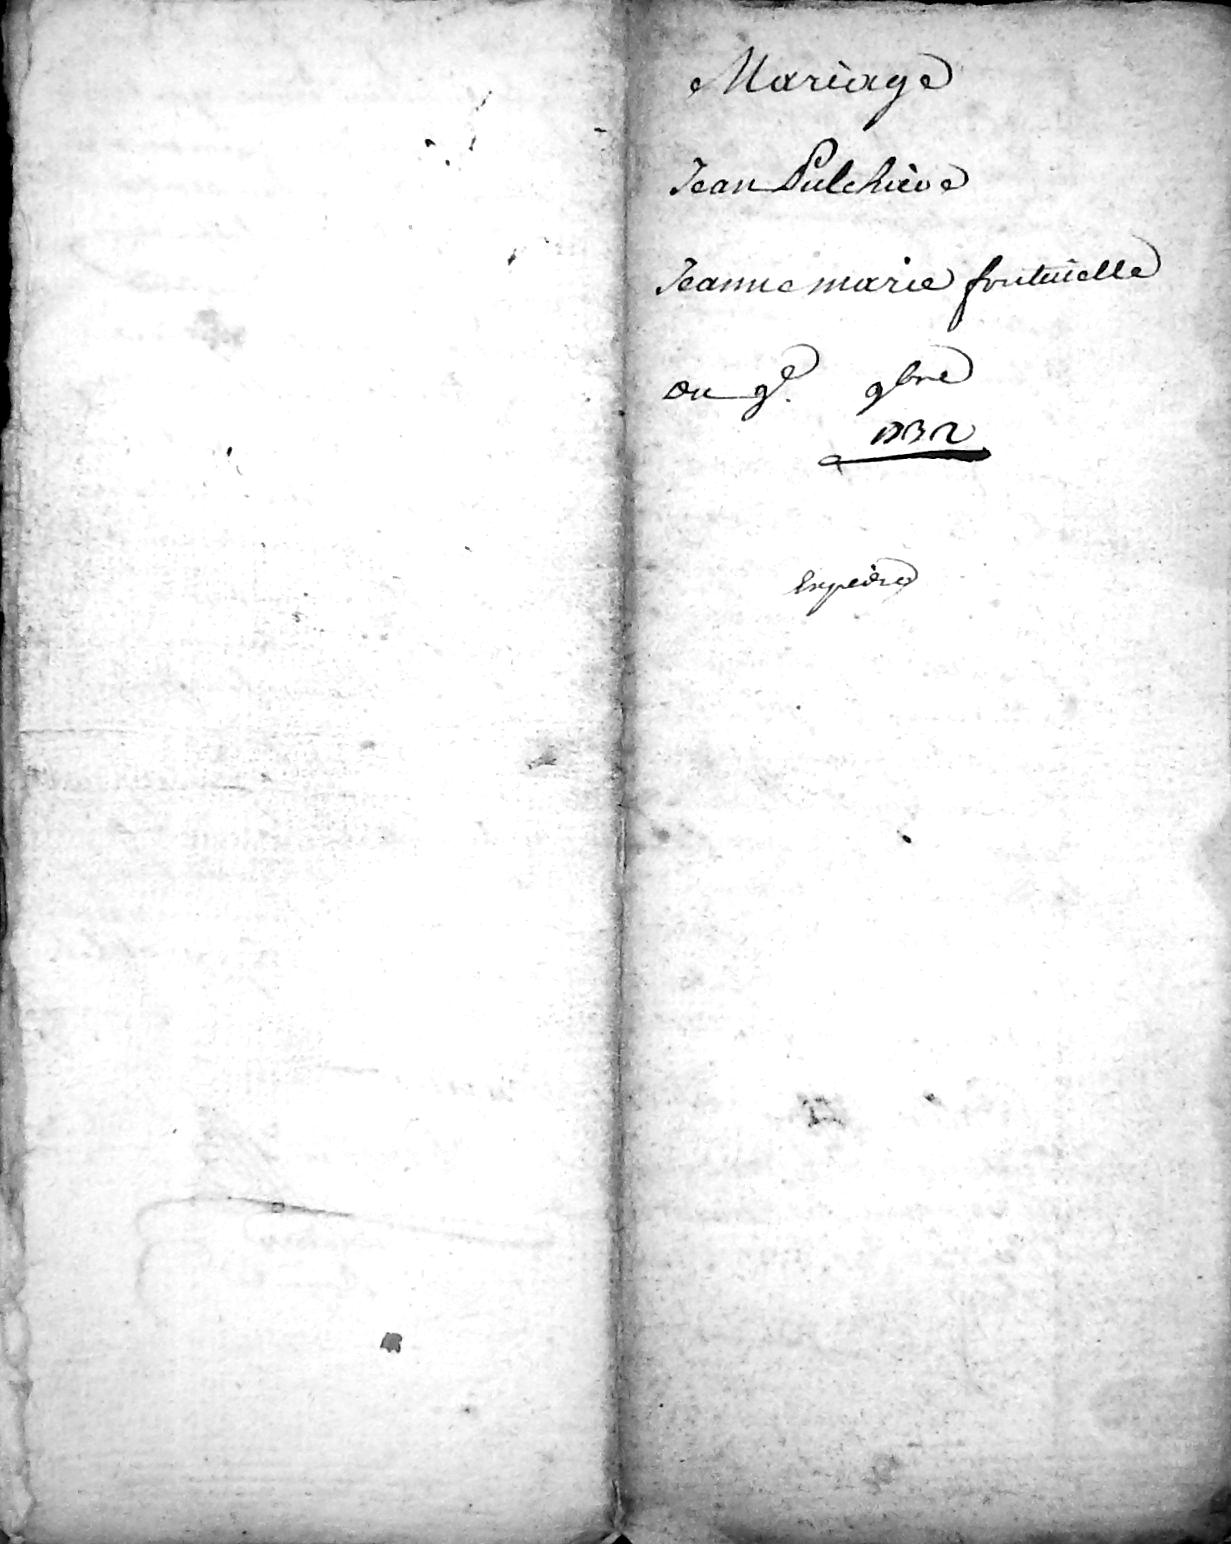 Mariage
Jean Pulchiere
Jeanne marie fontuielle
du 9e. 9bre
1732
Expedié